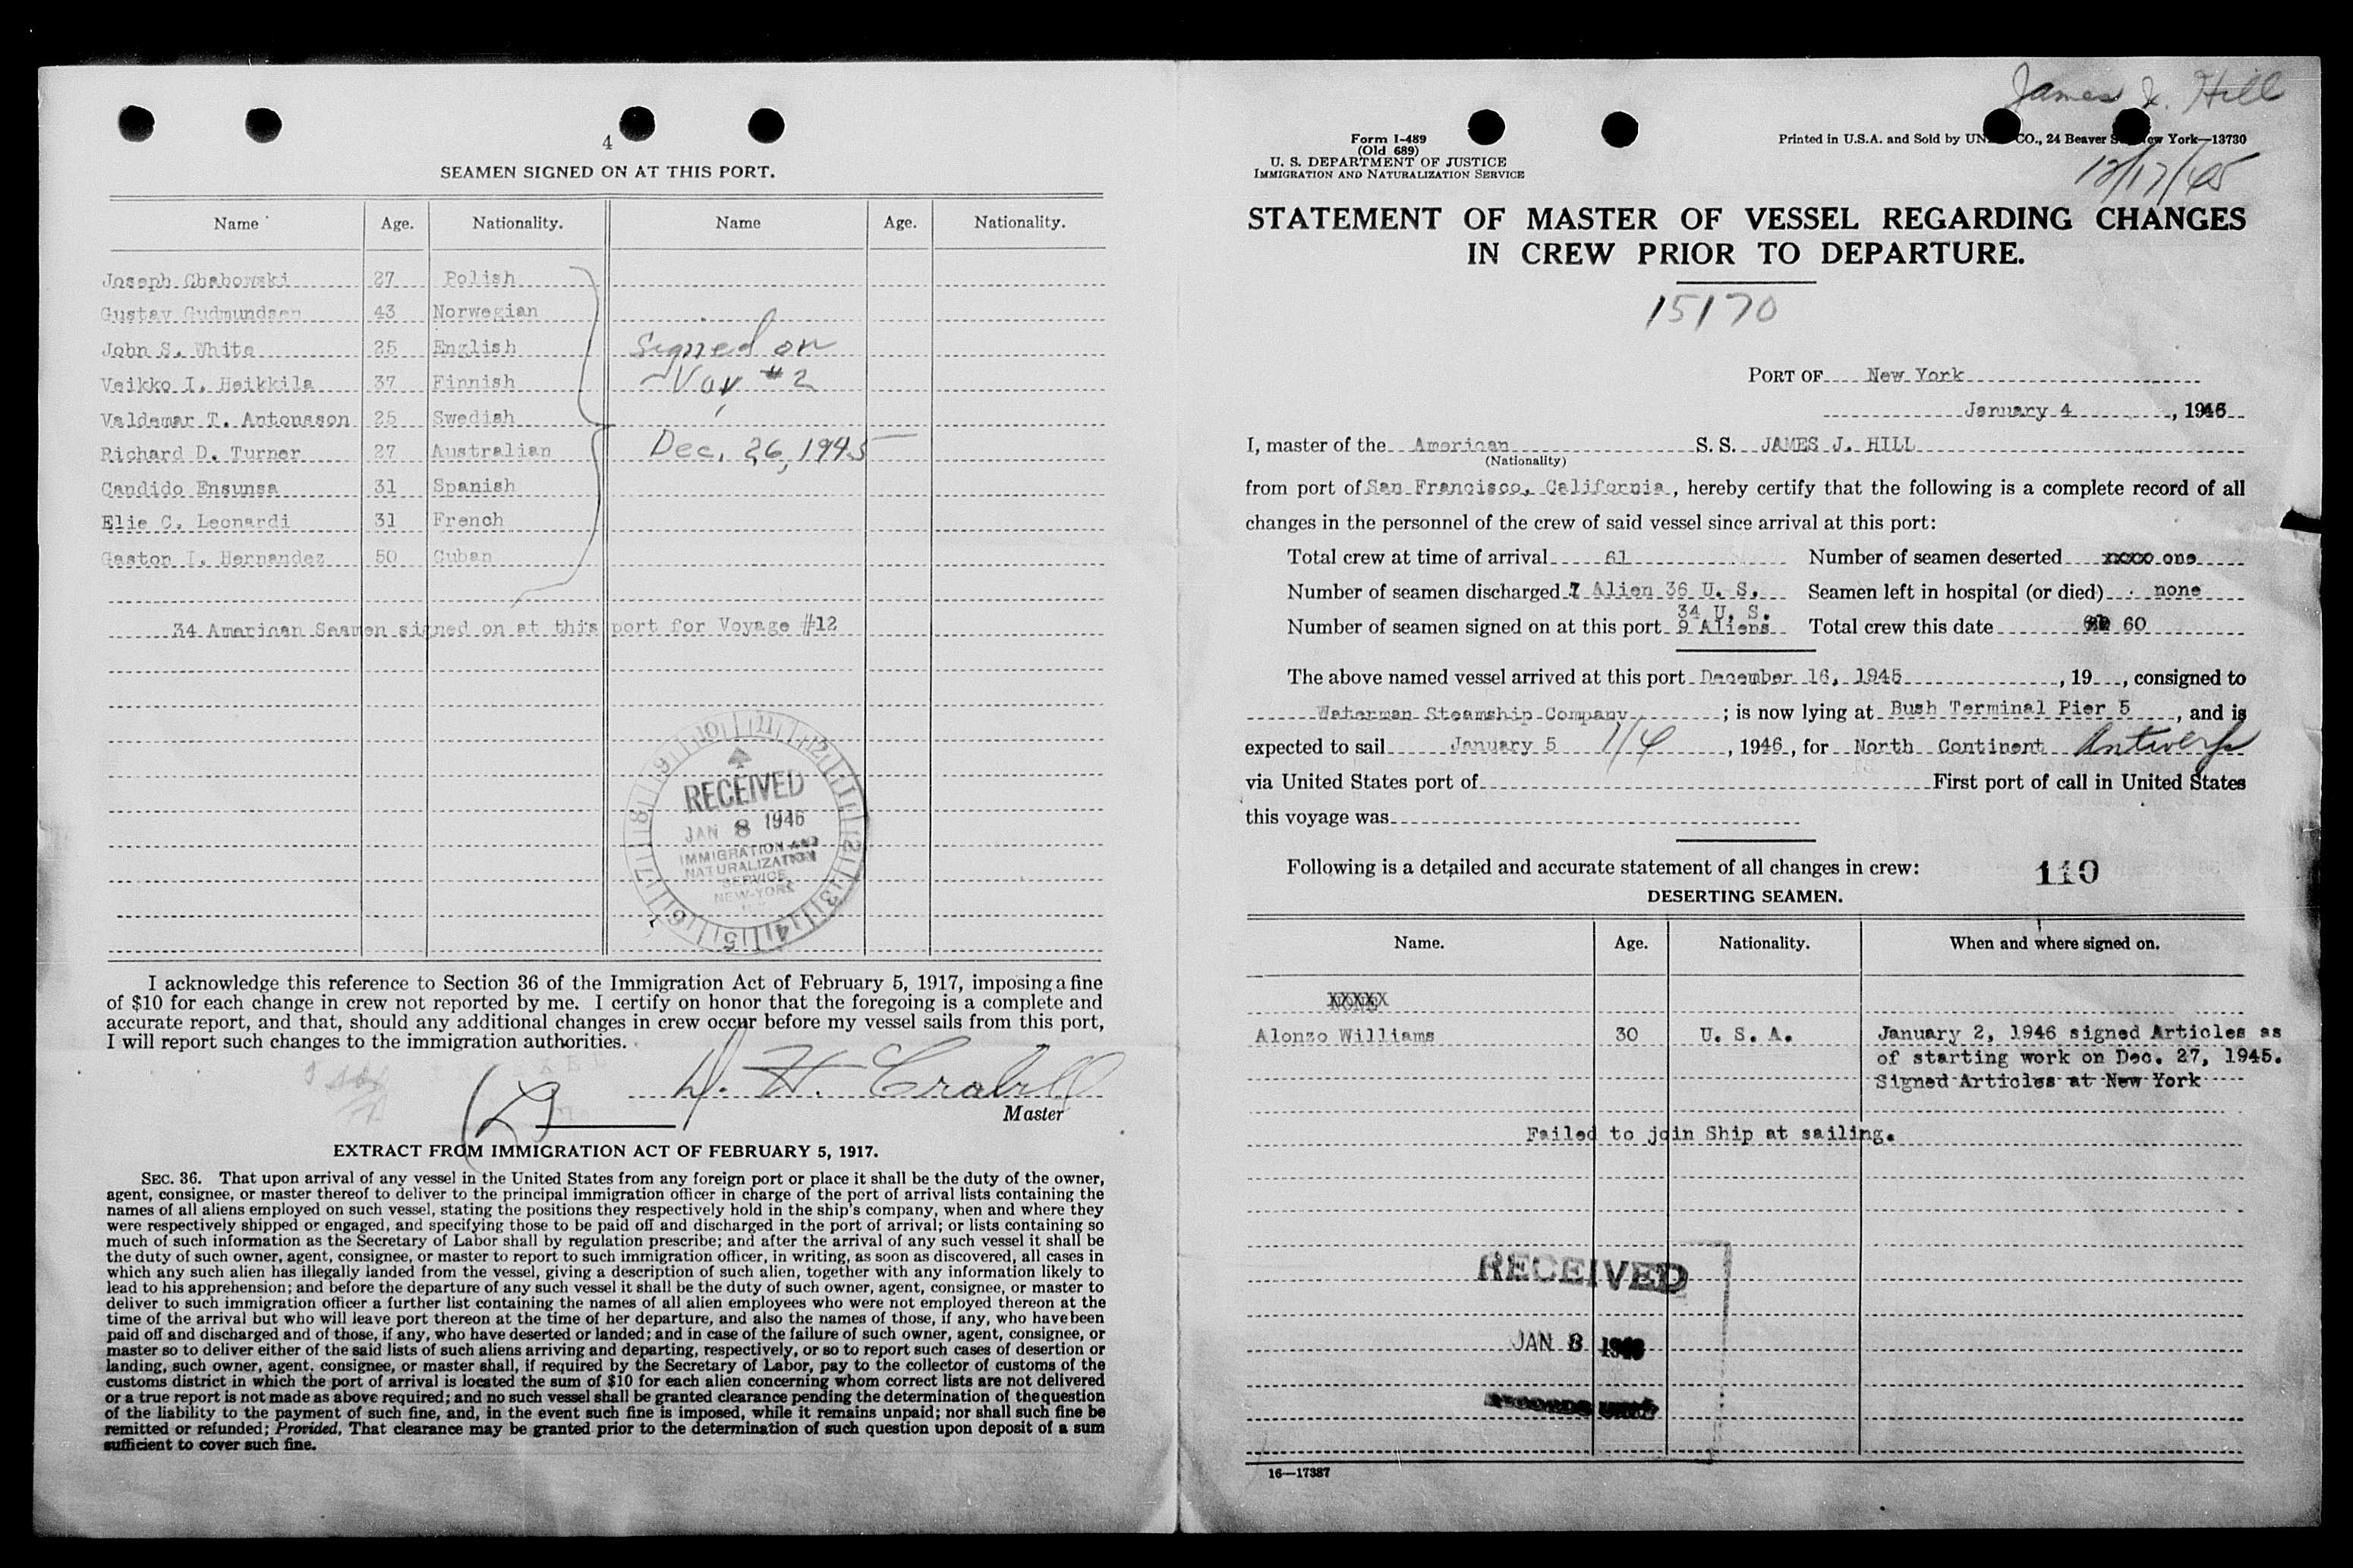 4
SEAMEN SIGNED ON AT THIS PORT.
Name Age. Nationality. Name Age. Nationality.
Joseph Chabowski 27 Polish
Gustav Gudmundsen 43 Norwegian
John S. White 25 English Signed on
Veikko I. Heikkila 37 Finnish Voy #2
Valdemar T. Antonsson 25 Swedish
Richard D. Turner 27 Australian Dec. 26, 1945
Candido Ensunsa 31 Spanish
Elie C. Leonardi 31 French
Gaston I. Hernandez 50 Cuban
34 American Seamen signed on at this port for Voyage #12
RECEIVED
JAN 8 1946
IMMIGRATION AND
NATURALIZATION
SERVICE
NEW-YORK
I acknowledge this reference to Section 36 of the Immigration Act of February 5, 1917, imposing a fine
of $10 for each change in crew not reported by me. I certify on honor that the foregoing is a complete and
accurate report, and that, should any additional changes in crew occur before my vessel sails from this port,
I will report such changes to the immigration authorities.
D. H. Crabill
Master
EXTRACT FROM IMMIGRATION ACT OF FEBRUARY 5, 1917.
SEC. 36. That upon arrival of any vessel in the United States from any foreign port or place it shall be the duty of the owner,
agent, consignee, or master thereof to deliver to the principal immigration officer in charge of the port of arrival lists containing the
names of all aliens employed on such vessel, stating the positions they respectively hold in the ship's company, when and where they
were respectively shipped or engaged, and specifying those to be paid off and discharged in the port of arrival; or lists containing so
much of such information as the Secretary of Labor shall by regulation prescribe; and after the arrival of any such vessel it shall be
the duty of such owner, agent, consignee, or master to report to such immigration officer, in writing, as soon as discovered, all cases in
which any such alien has illegally landed from the vessel, giving a description of such alien, together with any information likely to
lead to his apprehension; and before the departure of any such vessel it shall be the duty of such owner, agent, consignee, or master to
deliver to such immigration officer a further list containing the names of all alien employees who were not employed thereon at the
time of the arrival but who will leave port thereon at the time of her departure, and also the names of those, if any, who have been
paid off and discharged and of those, if any, who have deserted or landed; and in case of the failure of such owner, agent, consignee, or
master so to deliver either of the said lists of such aliens arriving and departing, respectively, or so to report such cases of desertion or
landing, such owner, agent, consignee, or master shall, if required by the Secretary of Labor, pay to the collector of customs of the
customs district in which the port of arrival is located the sum of $10 for each alien concerning whom correct lists are not delivered
or a true report is not made as above required; and no such vessel shall be granted clearance pending the determination of the question
of the liability to the payment of such fine, and, in the event such fine is imposed, while it remains unpaid; nor shall such fine be
remitted or refunded; Provided, That clearance may be granted prior to the determination of such question upon deposit of a sum
sufficient to cover such fine.
James J. Hill
Form I-489
(Old 689)
U. S. DEPARTMENT OF JUSTICE
IMMIGRATION AND NATURALIZATION SERVICE
Printed in U.S.A. and Sold by UN CO., 24 Beaver S ew York—13730
12/17/45
STATEMENT OF MASTER OF VESSEL REGARDING CHANGES
IN CREW PRIOR TO DEPARTURE.
15170
PORT OF New York
January 4, 1946
I, master of the American S. S. JAMES J. HILL
(Nationality)
from port of San Francisco, California, hereby certify that the following is a complete record of all
changes in the personnel of the crew of said vessel since arrival at this port:
Total crew at time of arrival 61 Number of seamen deserted xxxx one
Number of seamen discharged 7 Alien 36 U. S. Seamen left in hospital (or died) none
34 U. S.
Number of seamen signed on at this port 9 Aliens Total crew this date 60
The above named vessel arrived at this port December 16, 1945, 19 , consigned to
Waterman Steamship Company; is now lying at Bush Terminal Pier 5, and is
expected to sail January 5 1/4, 1946, for North Continent Antwerp
via United States port of First port of call in United States
this voyage was
Following is a detailed and accurate statement of all changes in crew:
110
DESERTING SEAMEN.
Name. Age. Nationality. When and where signed on.
XXXXX
Alonzo Williams 30 U. S. A. January 2, 1946 signed Articles as
of starting work on Dec. 27, 1945.
Signed Articles at New York
Failed to join Ship at sailing.
RECEIVED
JAN 8 1946
RECORDS UNIT
16—17387